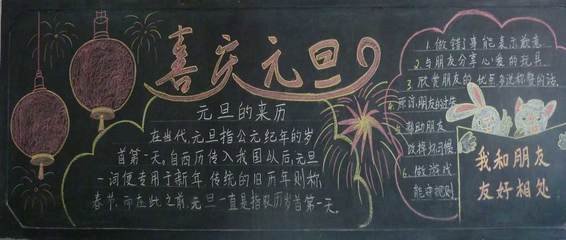 喜庆元旦
元旦的来历
在当代,元旦指公元纪年的岁
首第一天,自西历传入我国以后,元旦
一词便专用于新年,传统的旧历年则称
春节,而在此之前,元旦一直是指农历岁首第一天。
1.做错了事能表示歉意
2.与朋友分享心爱的玩具
3.欣赏朋友的优点多说称赞的话
4.原谅朋友的过失
5.帮助朋友
改掉坏习惯
6.做游戏
能守规则
我和朋友
友好相处